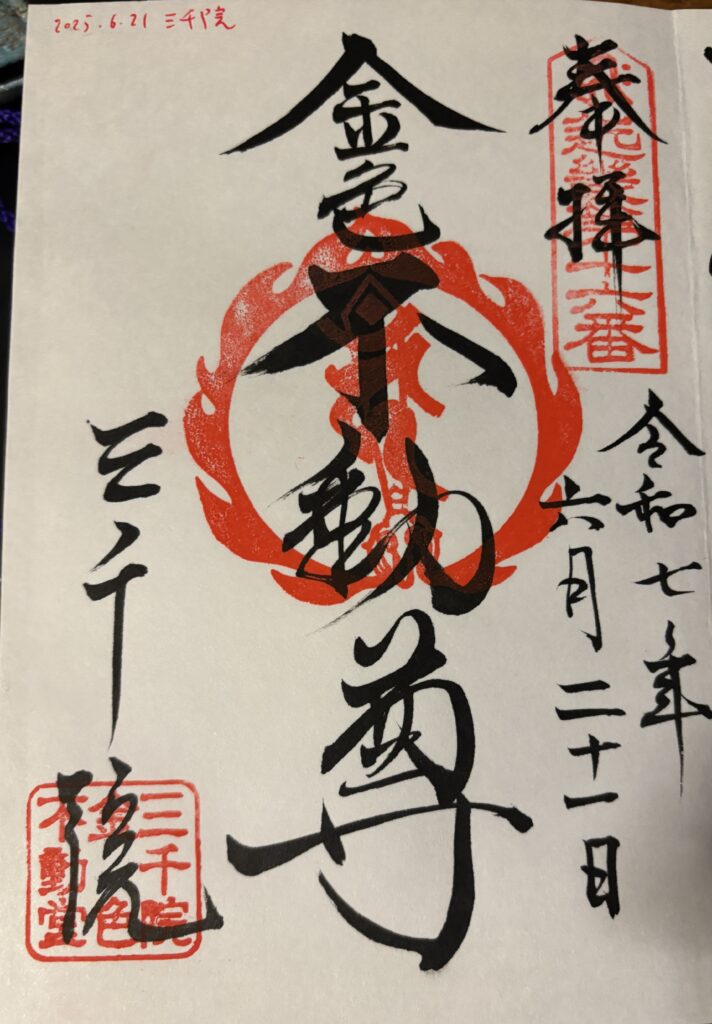 2025.6.21 三千院
奉拝
令和七年
六月二十一日
金色不動尊
三千院
三千院
金色
不動堂